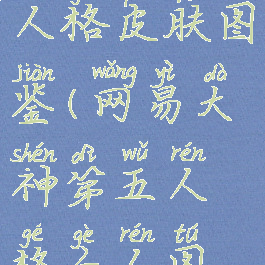 人格皮肤图
jiàn wǎng yì dà
鉴(网易大
shén dì wǔ rén
神第五人
gé gè rén tú
格个人图